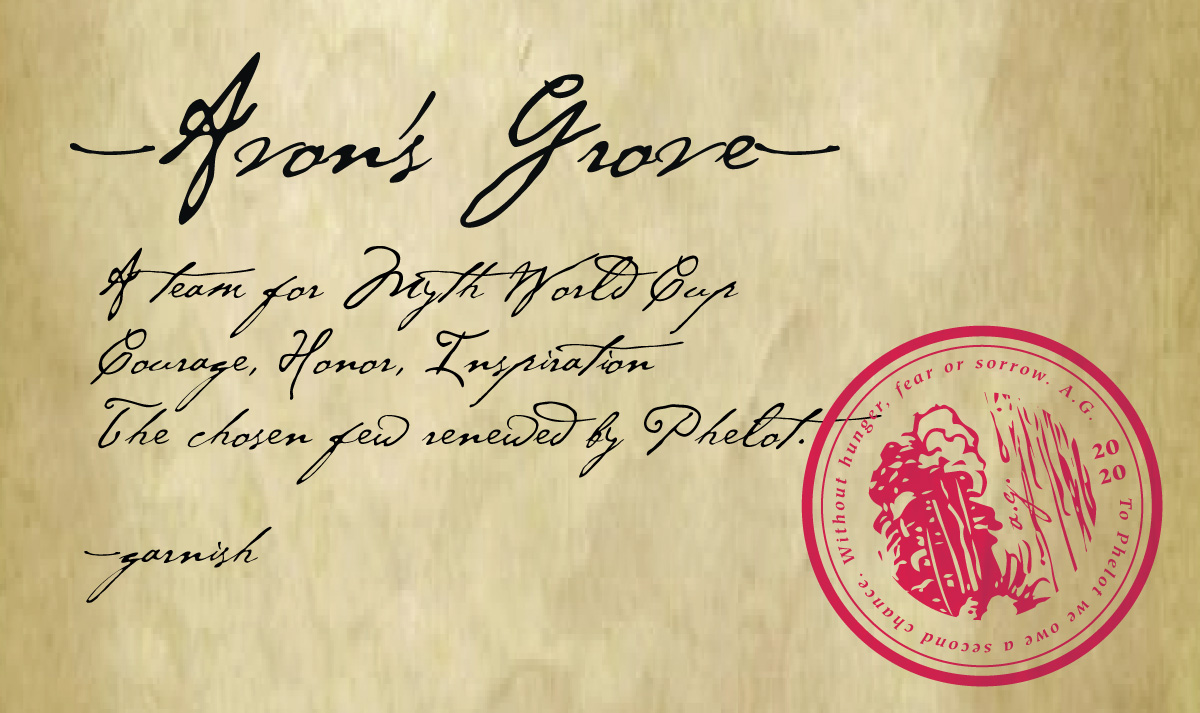 Avon's Grove
A team for Myth World Cup
Courage, Honor, Inspiration
The chosen few renewed by Phelot.
-garnish
Without hunger, fear or sorrow. A.G.
20
20
To Phelot we owe a second chance.
a.g.